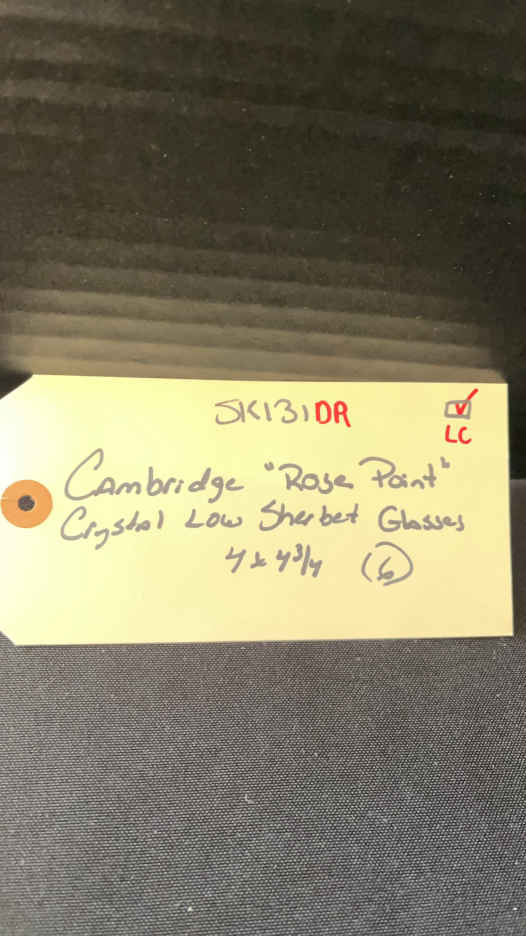 SK131DR
LC
Cambridge "Rose Point"
Crystal Low Sherbet Glasses
4 x 4 3/4 (6)